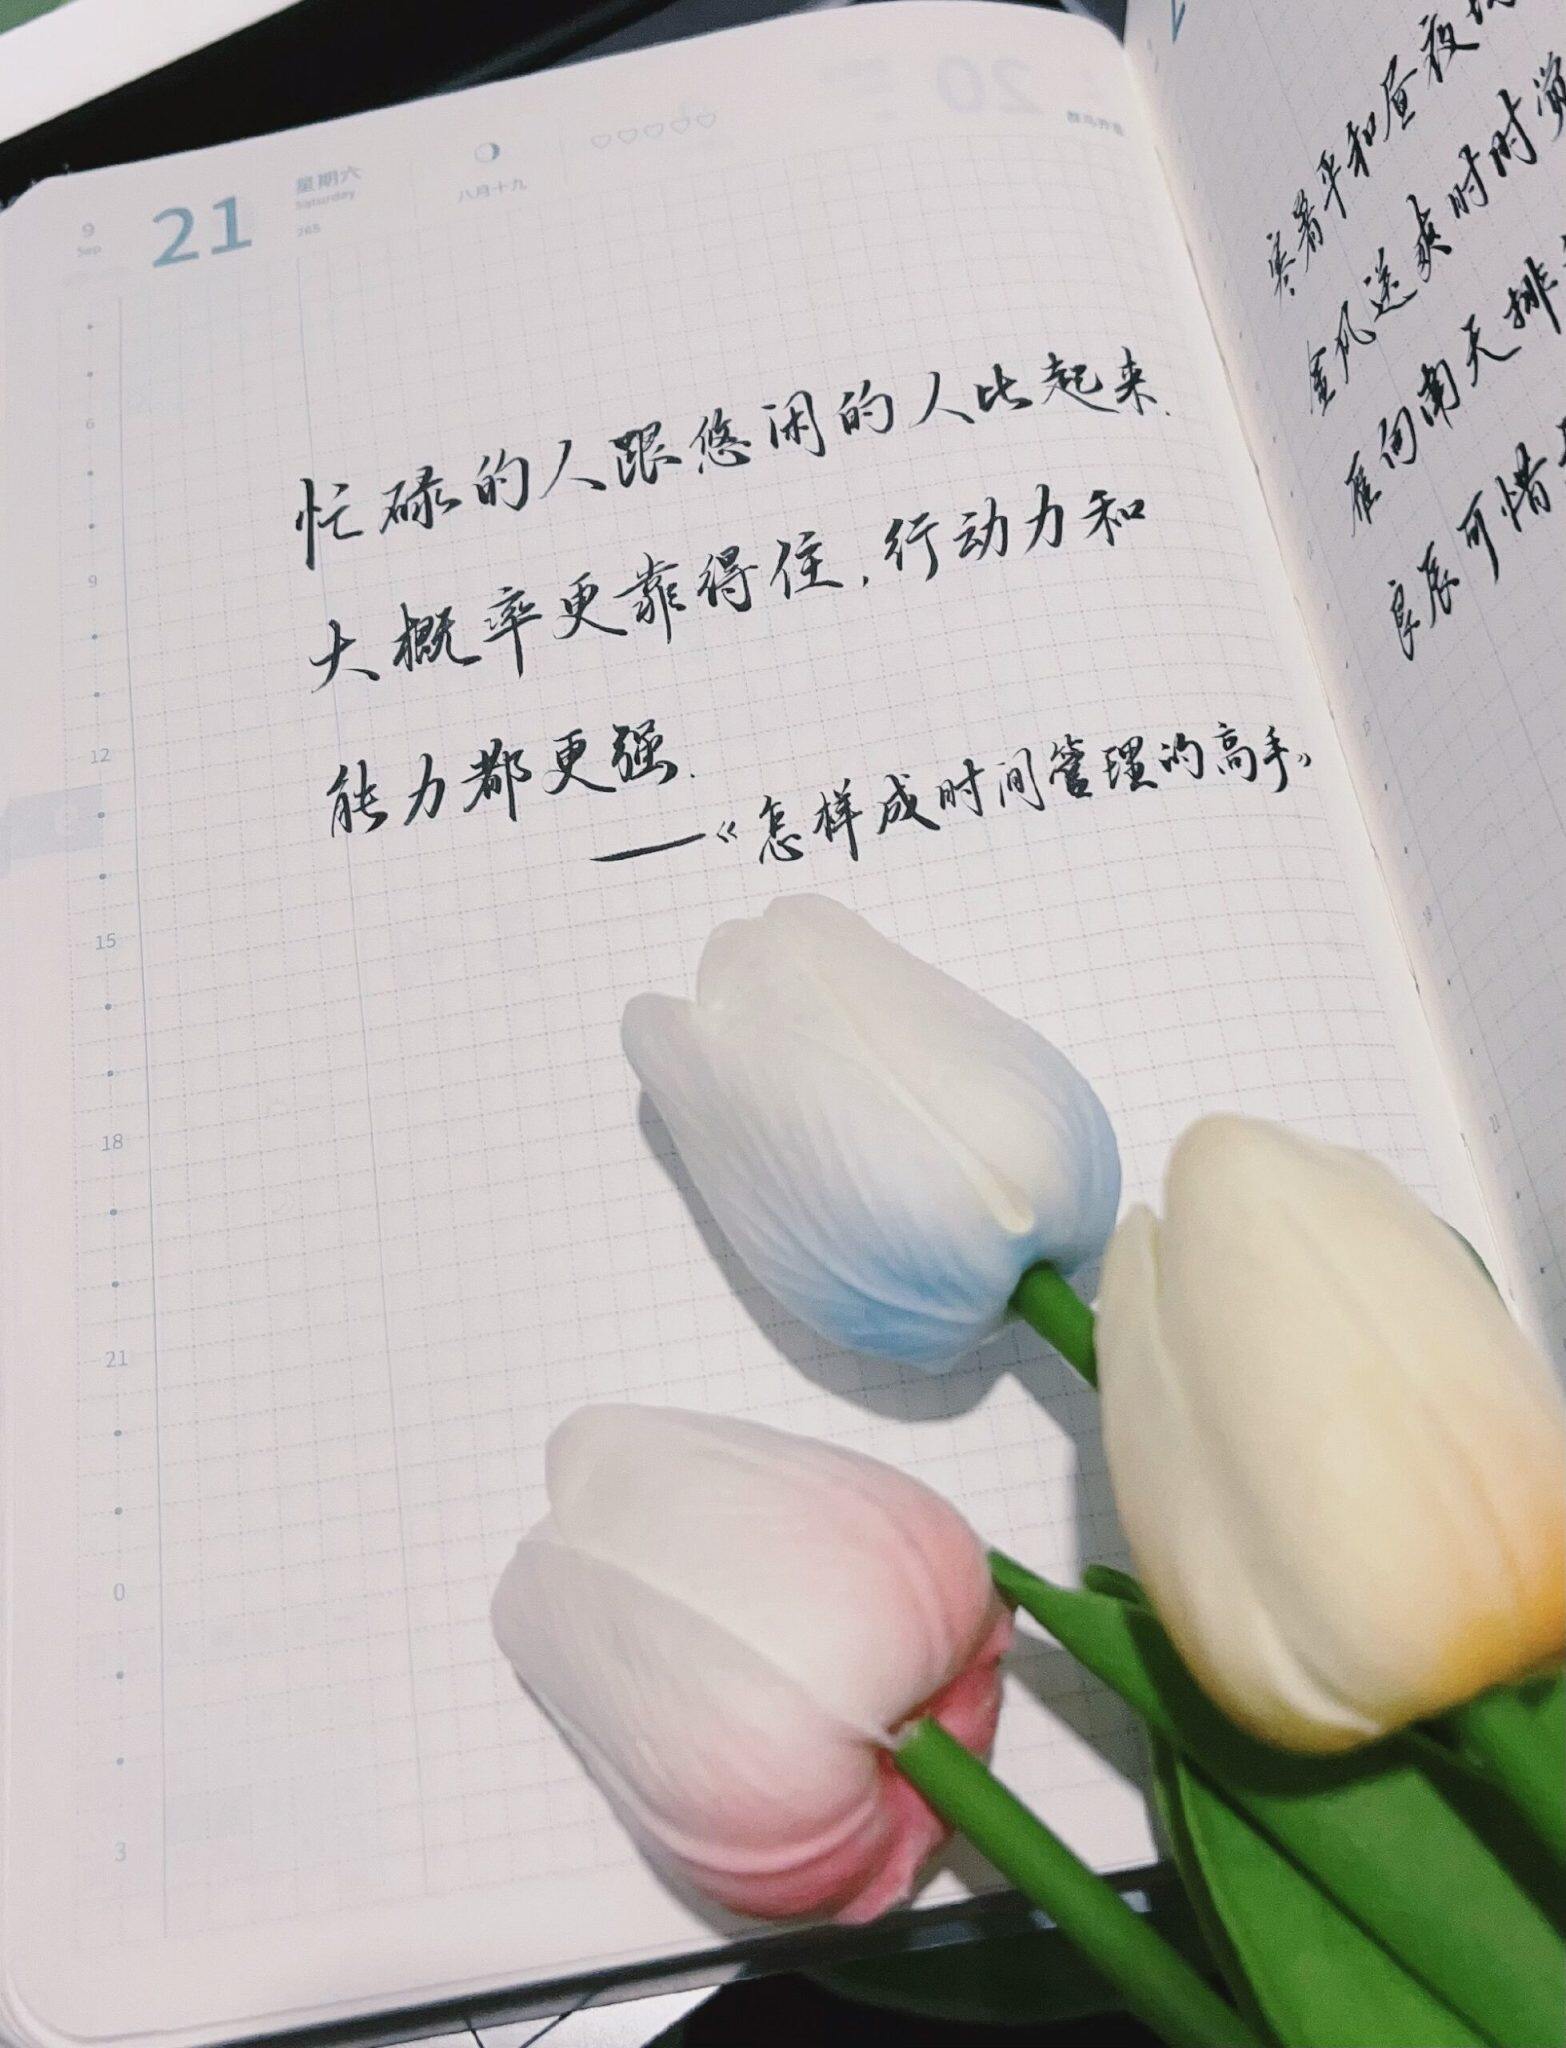 9
Sep
21
星期六
Saturday
265
八月十九
忙碌的人跟悠闲的人比起来.
大概率更靠得住,行动力和
能力都更强.
——《怎样成时间管理的高手》
6
9
12
15
18
21
0
3
寒暑平和昼夜均
金风送爽时时觉
雁向南天排
良辰可惜